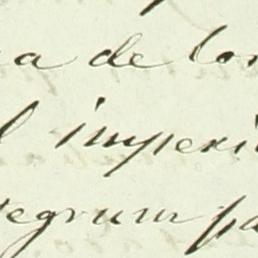 a de lo
l imperi
tegrum pa